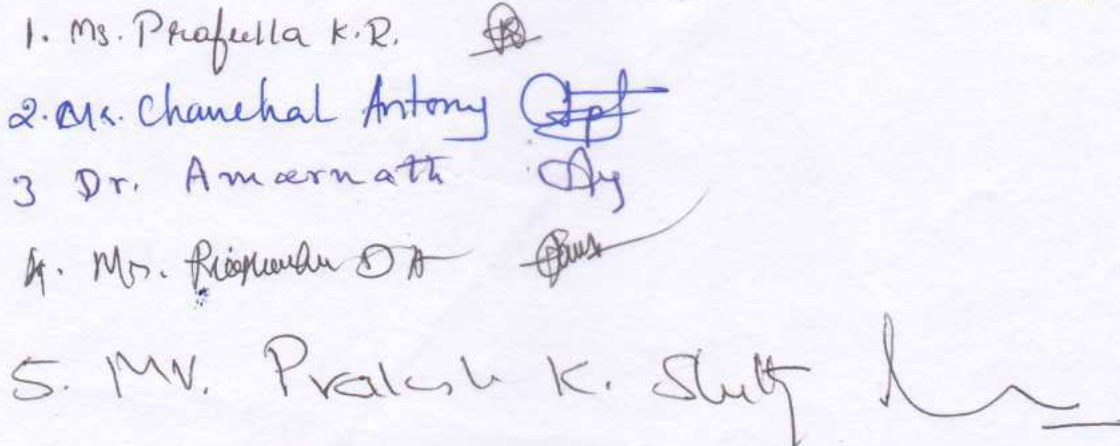 1. Ms. Prafulla K.R.
2. Ms. Chanchal Antony
3 Dr. Amarnath
4. Mrs. D A
5. Mr. Prakash K. Shetty